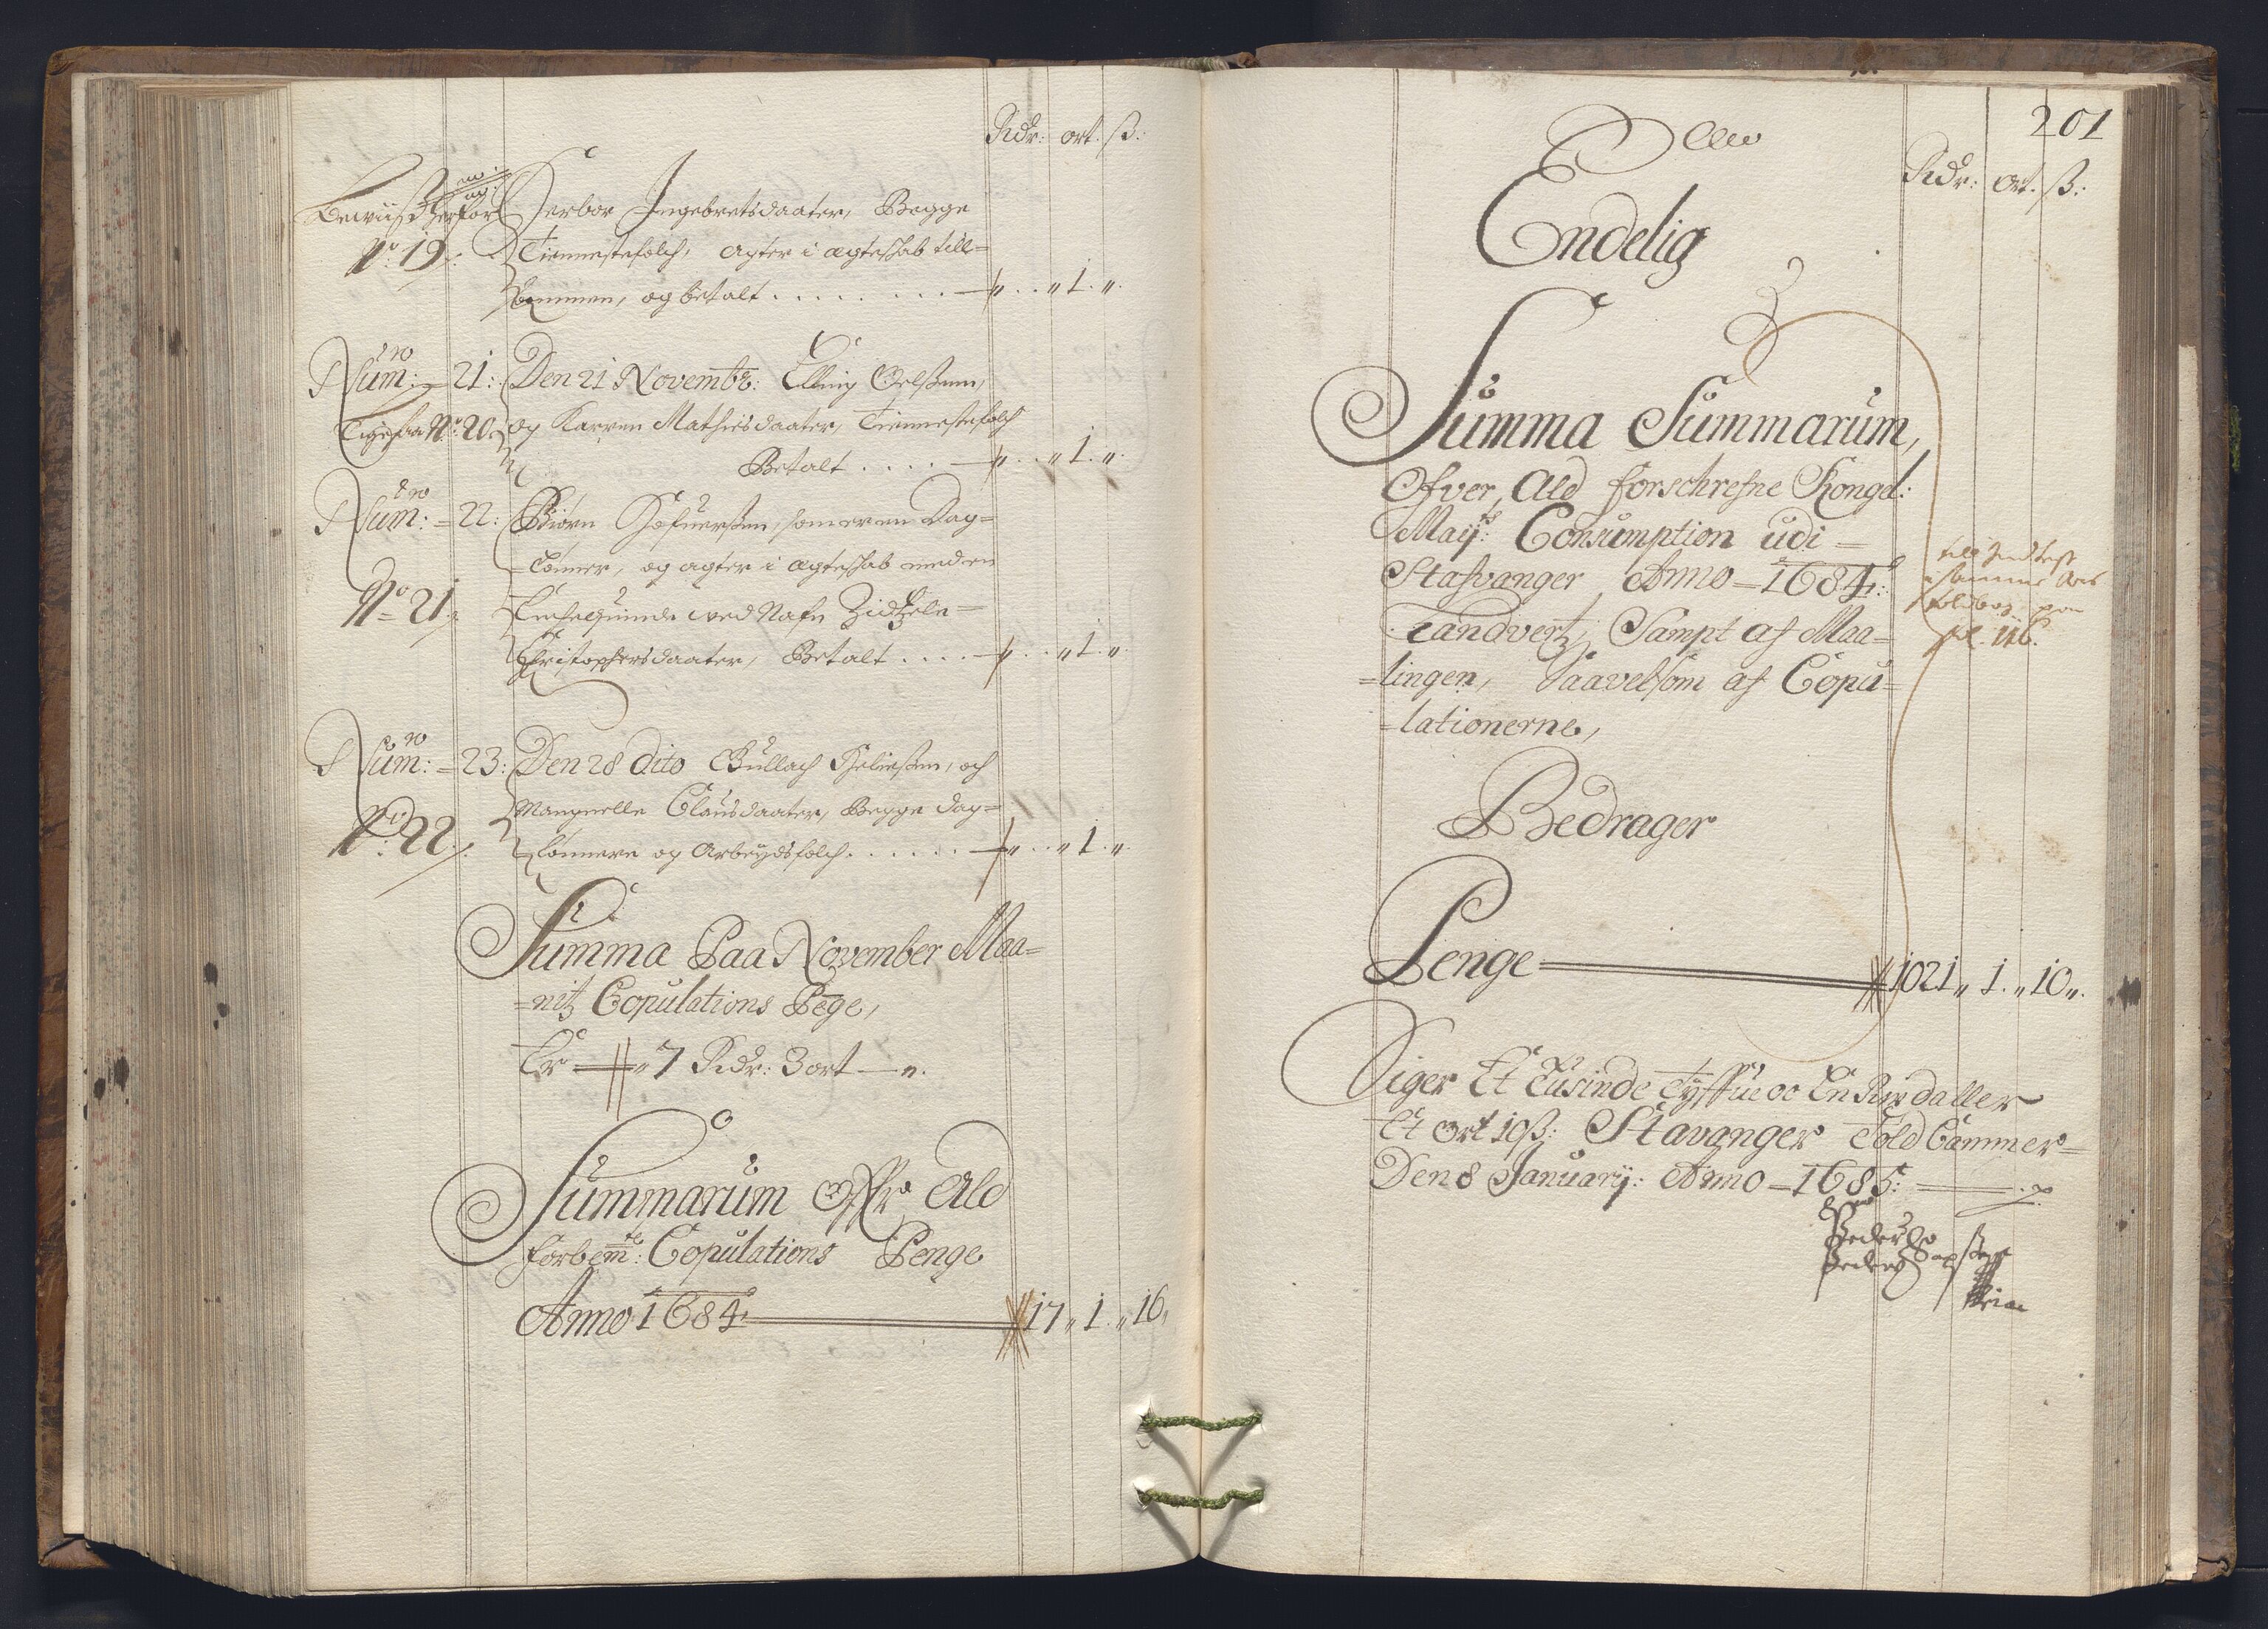 Rdr: ort. ß:
Herbor Ingebretsdaater, Begge
No 19
Tiennestefolch, agter i ægteskab till=
kommen, og betalt . . . . . . . . „ . . „ 1 . „.
Num:ro = 21: Den 21 Novembr: Elling Oelßenn,
No: 20. og Karren Mathisdaater, Tiennestefolch
Betalt . . . . „ . . „ 1. „.
Num:ro = 22: Biörn som er en Dag=
=Lönner, og agter i ægteskab med en
No 21
Encheqvinde ved Nafn Zidtzele=
Christophersdaater, Betalt . . . . „ . . „ 1. „.
Num:ro = 23: Den 28 Dito Gullach och
Clausdaater, Begge dag=
No: 22
Lönnere og Arbeydsfolch . . . . . . „ . . „ 1. „.
Summa Paa November Maa=
=nitz Copulations Pege,
Er „ 7 Rdr: 3 ort — „.
Summarum Offr Ald
forbemte: Copulations Penge
Anno 1684 17 „ 1. „ 16,
201
Rdr: Ort. ß:
Endelig
Summa Summarum,
Ofver Ald forschrefne Kongel:
Mayts: Consumption udi =
Stafvanger Anno = 1684:
Landvertz, Sampt af Maa=
=lingen, Saavelsom af Copu=
=lationerne,
Bedrager
Penge 1021 „ 1. „ 10 „.
Siger Et Tusinde Tyffue oc En Rixdaller
Et Ort 10ß: Stavanger Told Cammer=
Den 8 Januarij: Anno = 1685: